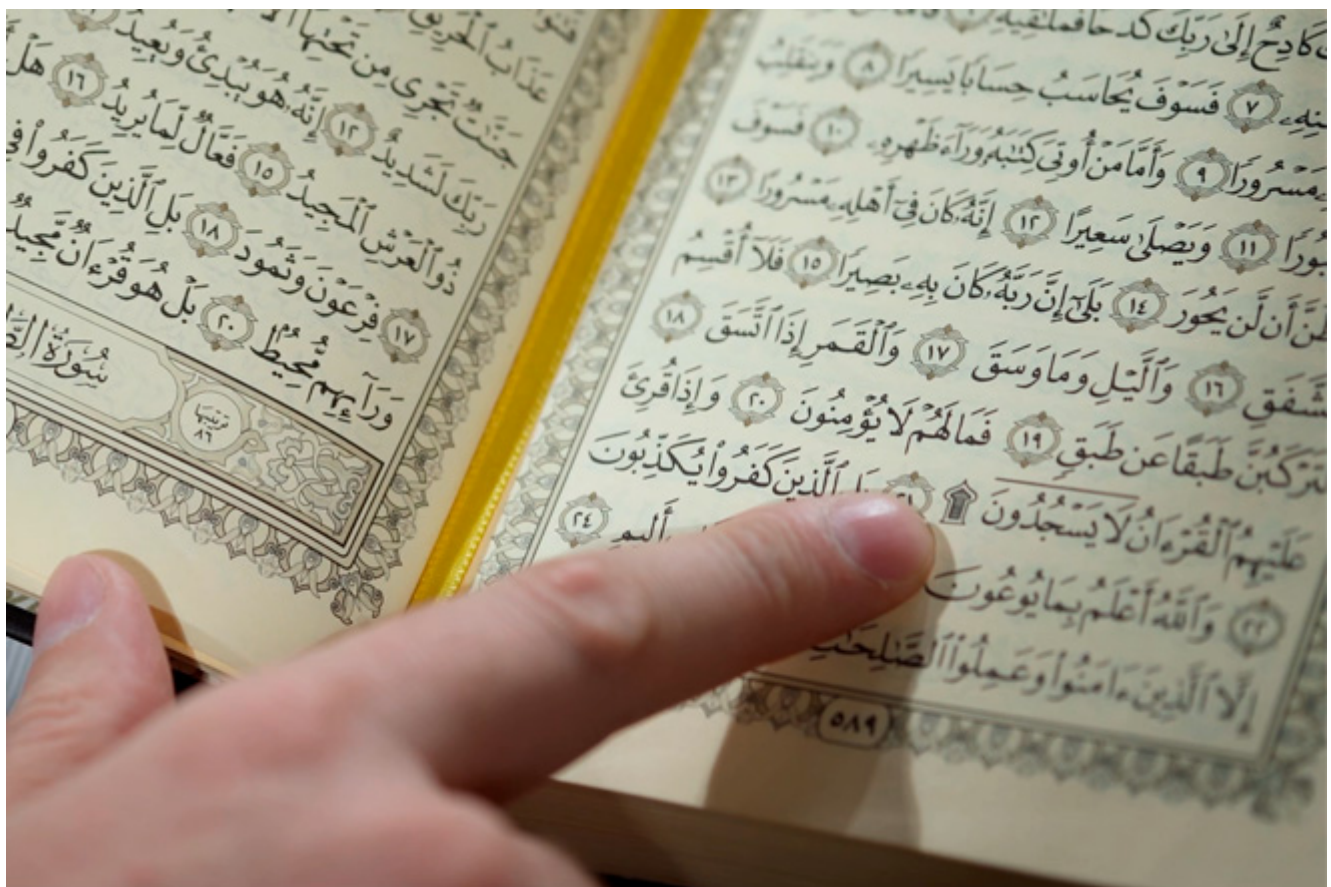 كَادِحٌ إِلَىٰ رَبِّكَ كَدْحًا فَمُلَٰقِيهِ
٧ فَسَوْفَ يُحَاسَبُ حِسَابًا يَسِيرًا ٨ وَيَنقَلِبُ
مَسْرُورًا ٩ وَأَمَّا مَنْ أُوتِىَ كِتَٰبَهُۥ وَرَآءَ ظَهْرِهِۦ ١٠ فَسَوْفَ
١١ وَيَصْلَىٰ سَعِيرًا ١٢ إِنَّهُۥ كَانَ فِىٓ أَهْلِهِۦ مَسْرُورًا ١٣
ظَنَّ أَن لَّن يَحُورَ ١٤ بَلَىٰٓ إِنَّ رَبَّهُۥ كَانَ بِهِۦ بَصِيرًا ١٥ فَلَآ أُقْسِمُ
١٦ وَٱلَّيْلِ وَمَا وَسَقَ ١٧ وَٱلْقَمَرِ إِذَا ٱتَّسَقَ ١٨
لَتَرْكَبُنَّ طَبَقًا عَن طَبَقٍ ١٩ فَمَا لَهُمْ لَا يُؤْمِنُونَ ٢٠ وَإِذَا قُرِئَ
عَلَيْهِمُ ٱلْقُرْءَانُ لَا يَسْجُدُونَ ۩ ٱلَّذِينَ كَفَرُوا۟ يُكَذِّبُونَ
٢٢ وَٱللَّهُ أَعْلَمُ بِمَا يُوعُونَ أَلِيمٍ ٢٤
إِلَّا ٱلَّذِينَ ءَامَنُوا۟ وَعَمِلُوا۟ ٱلصَّٰلِحَٰتِ
٥٨٩
عَذَابُ ٱلْحَرِيقِ
جَنَّٰتٌ تَجْرِى مِن تَحْتِهَا
رَبِّكَ لَشَدِيدٌ ١٢ إِنَّهُۥ هُوَ يُبْدِئُ وَيُعِيدُ
ذُو ٱلْعَرْشِ ٱلْمَجِيدُ ١٥ فَعَّالٌ لِّمَا يُرِيدُ ١٦ هَلْ
١٧ فِرْعَوْنَ وَثَمُودَ ١٨ بَلِ ٱلَّذِينَ كَفَرُوا۟ فِى
وَرَآئِهِم مُّحِيطٌۢ ٢٠ بَلْ هُوَ قُرْءَانٌ مَّجِيدٌ
تَرْتِيبُهَا
٨٦
سُورَةُ